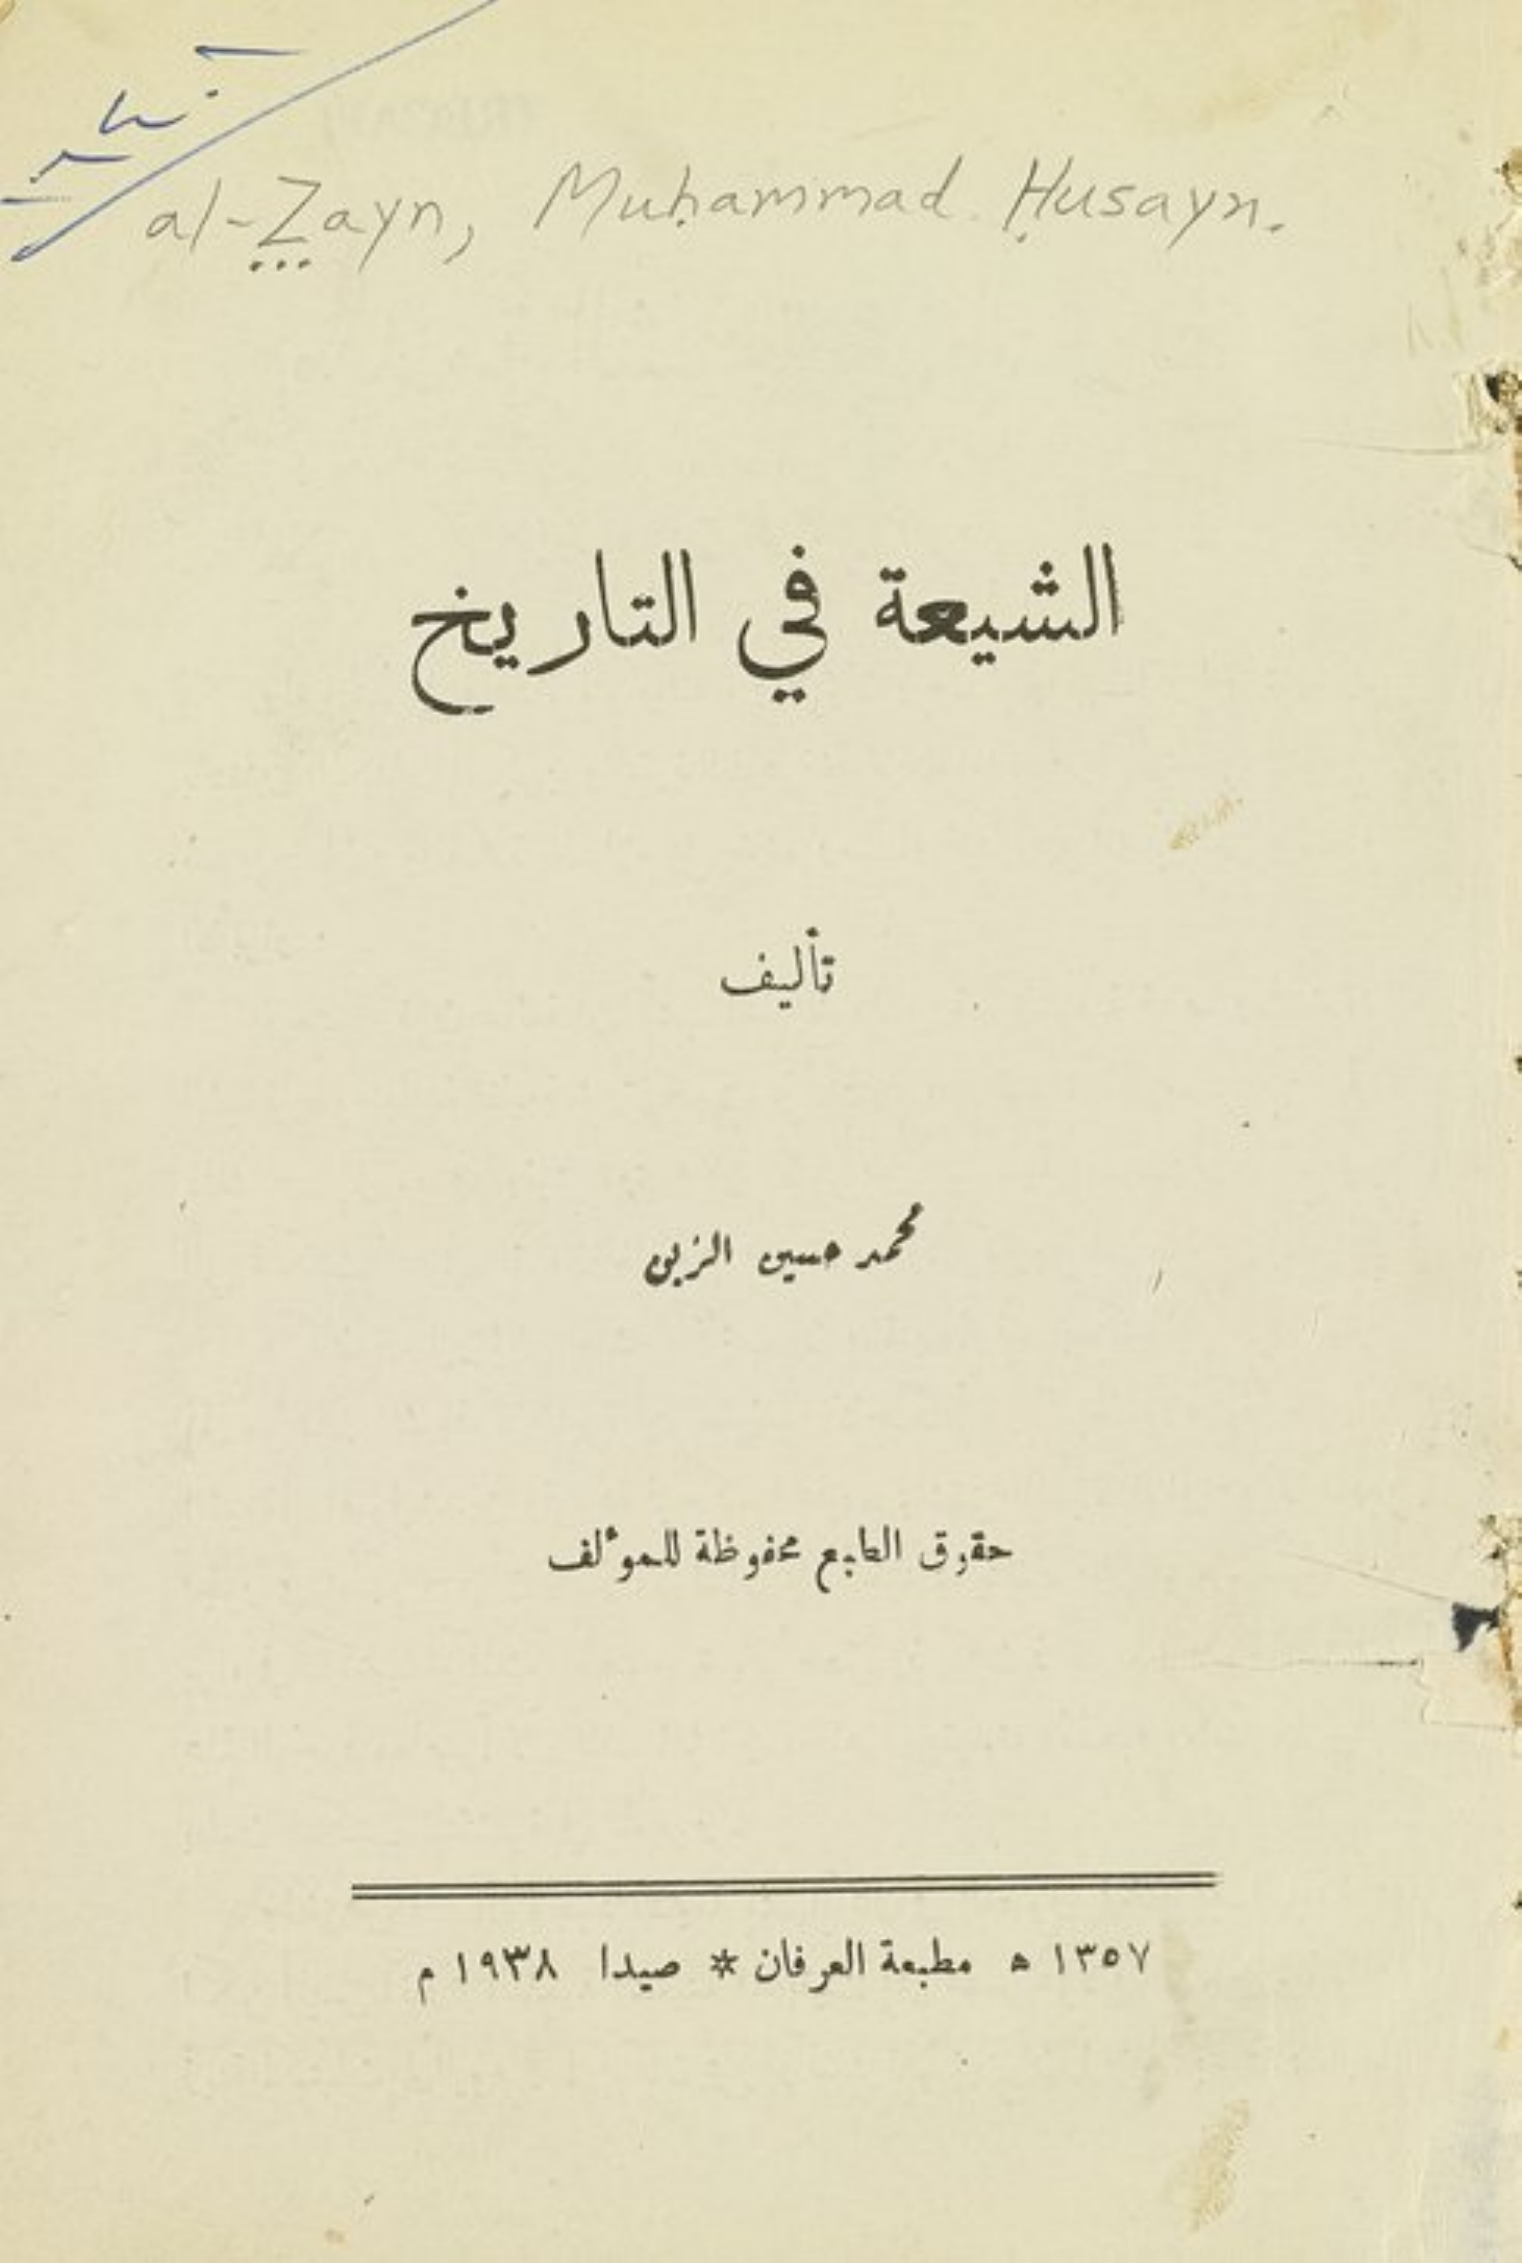 al-Zayn, Muḥammad Ḥusayn.
الشيعة في التاريخ
تأليف
محمد حسين الزين
حقوق الطبع محفوظة للمؤلف
١٣٥٧ ه مطبعة العرفان * صيدا ١٩٣٨ م